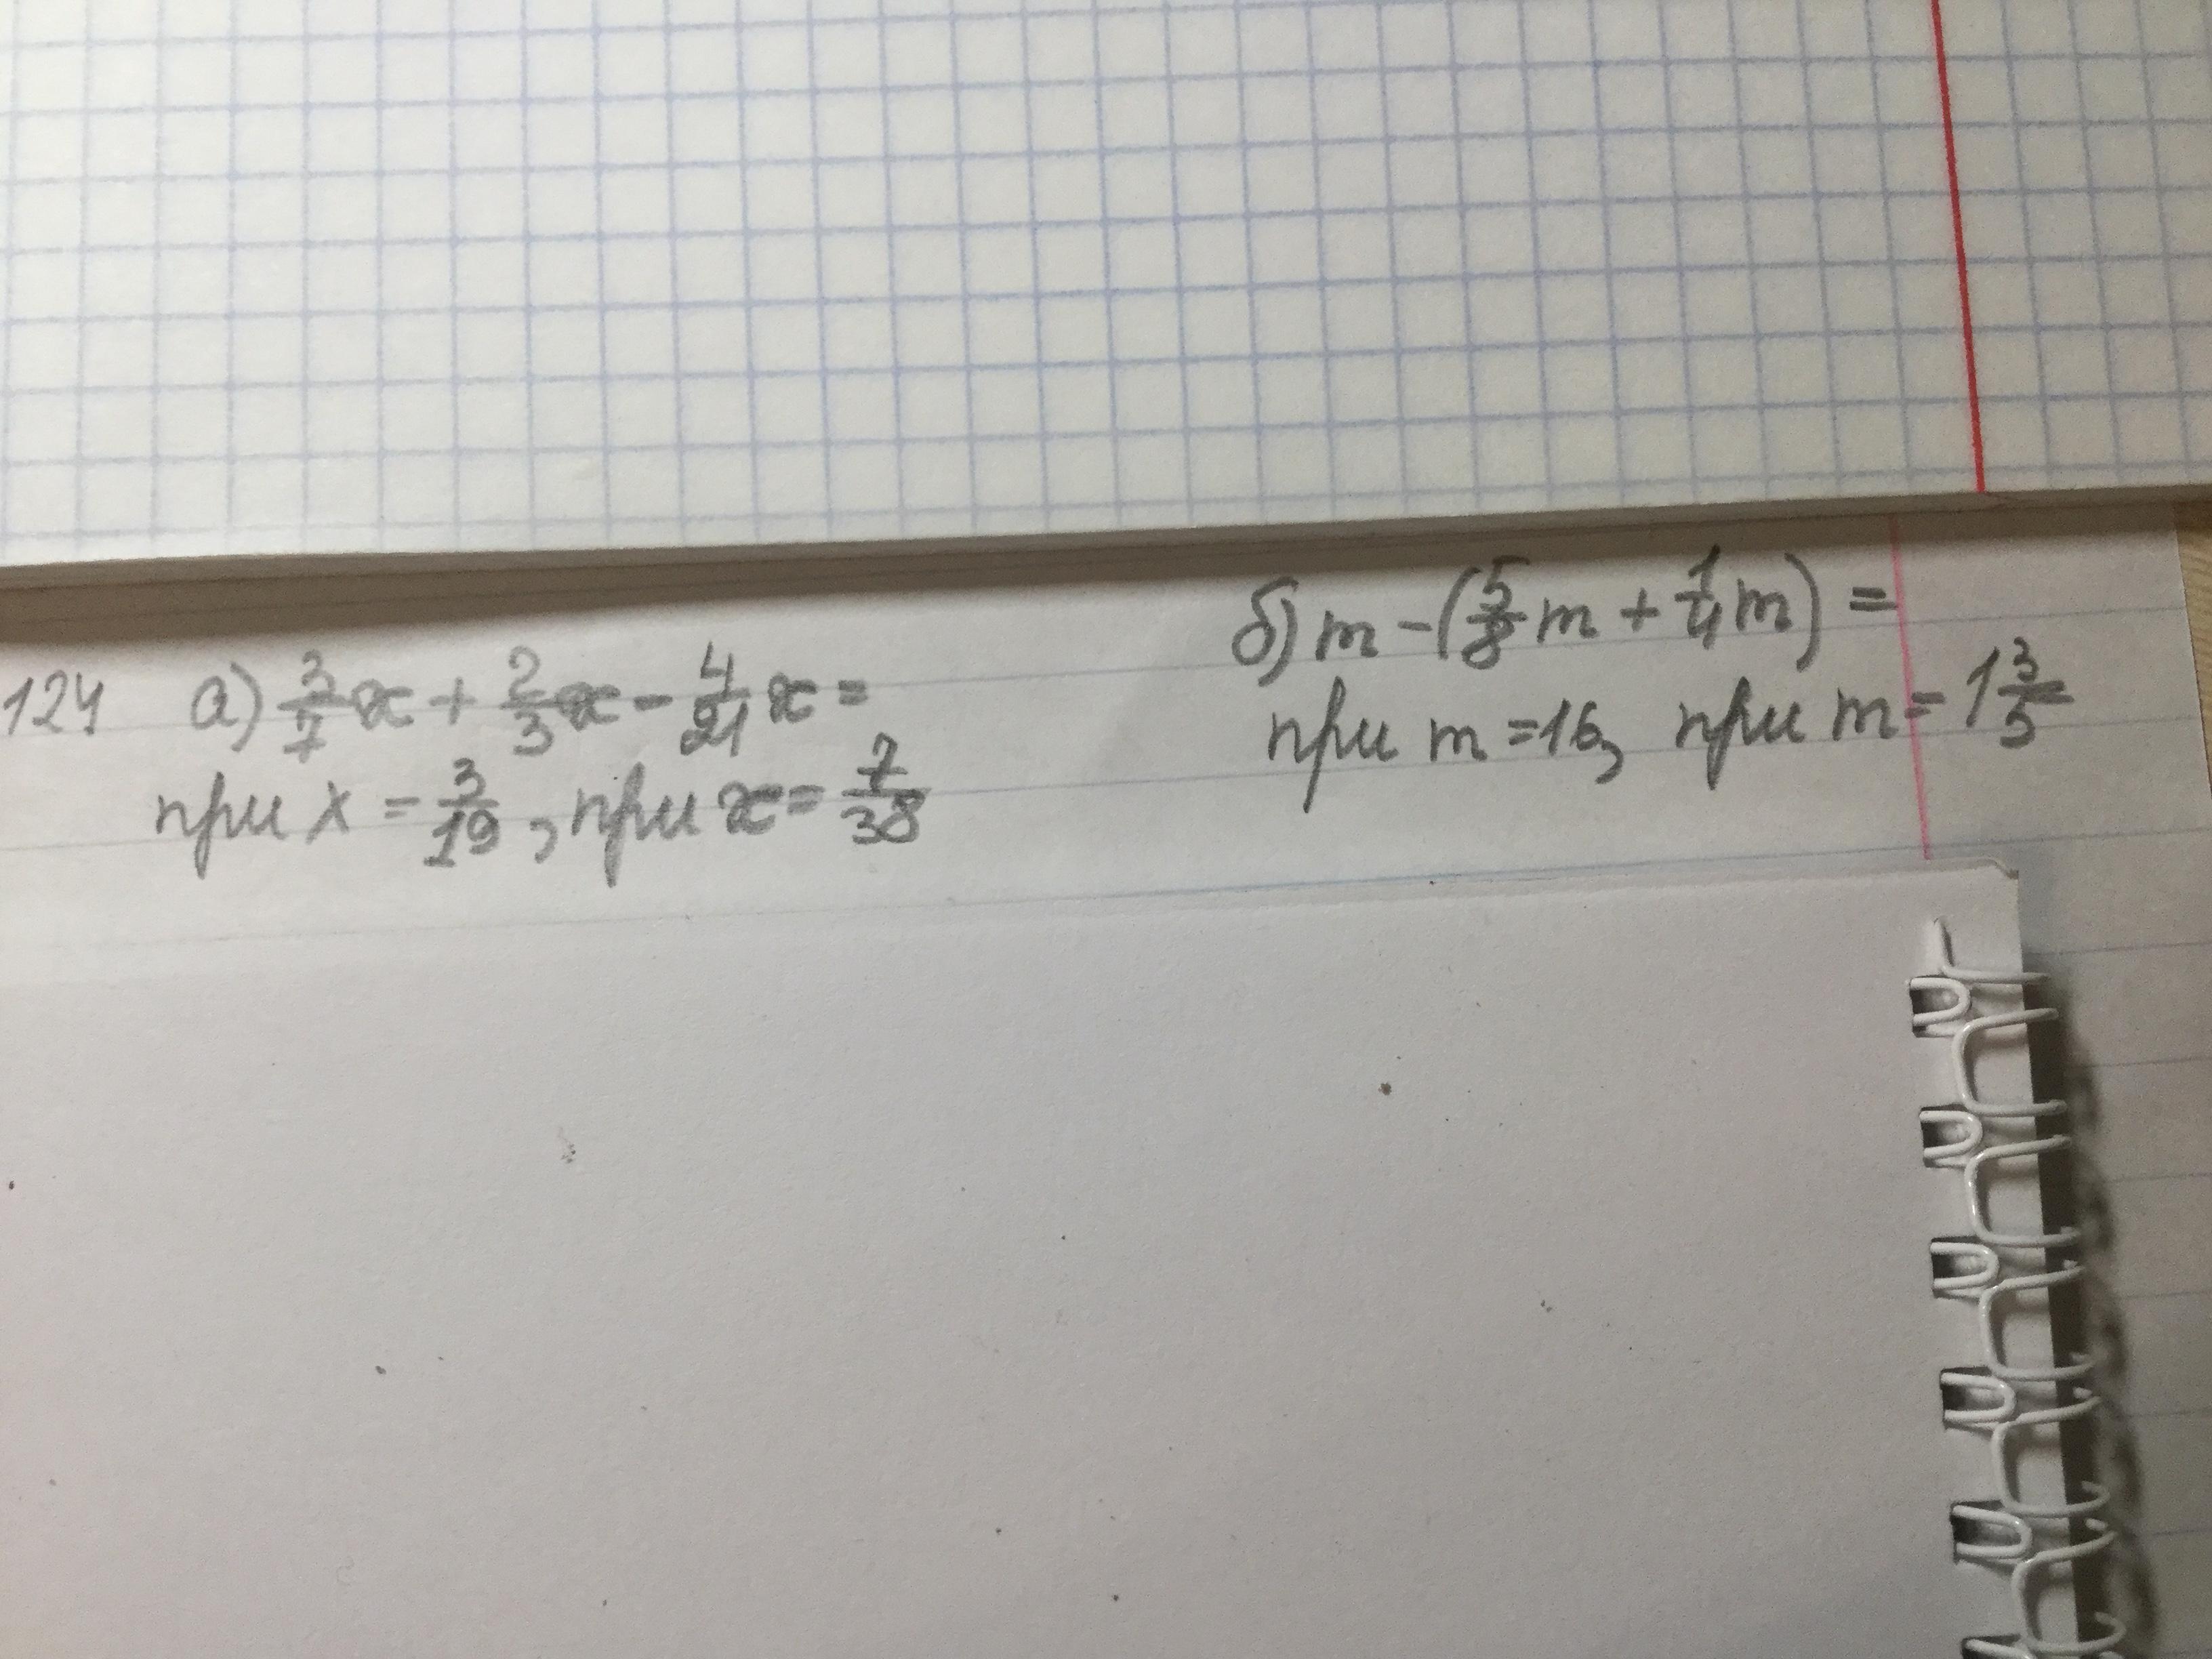 124 а) 3/7 x + 2/3 x - 4/21 x =
при x = 3/19, при x = 7/38
б) m - (5/8 m + 1/4 m) =
при m = 16, при m = 1 3/5